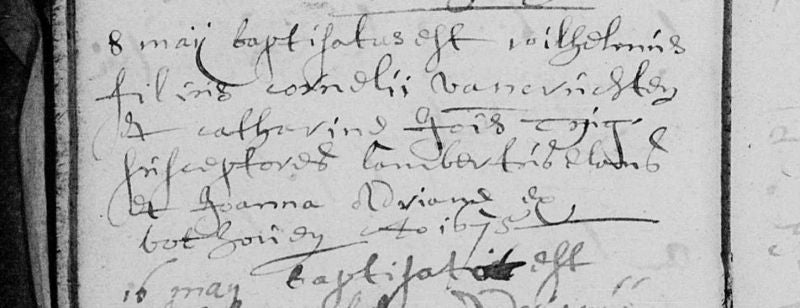 8 maij baptisatus est wilhelmus
filius cornelii van cruchten
et catharinæ Jois
susceptores lambertus
et Joanna Adriane ex
bothoven Ao 1675
16 may baptisat est